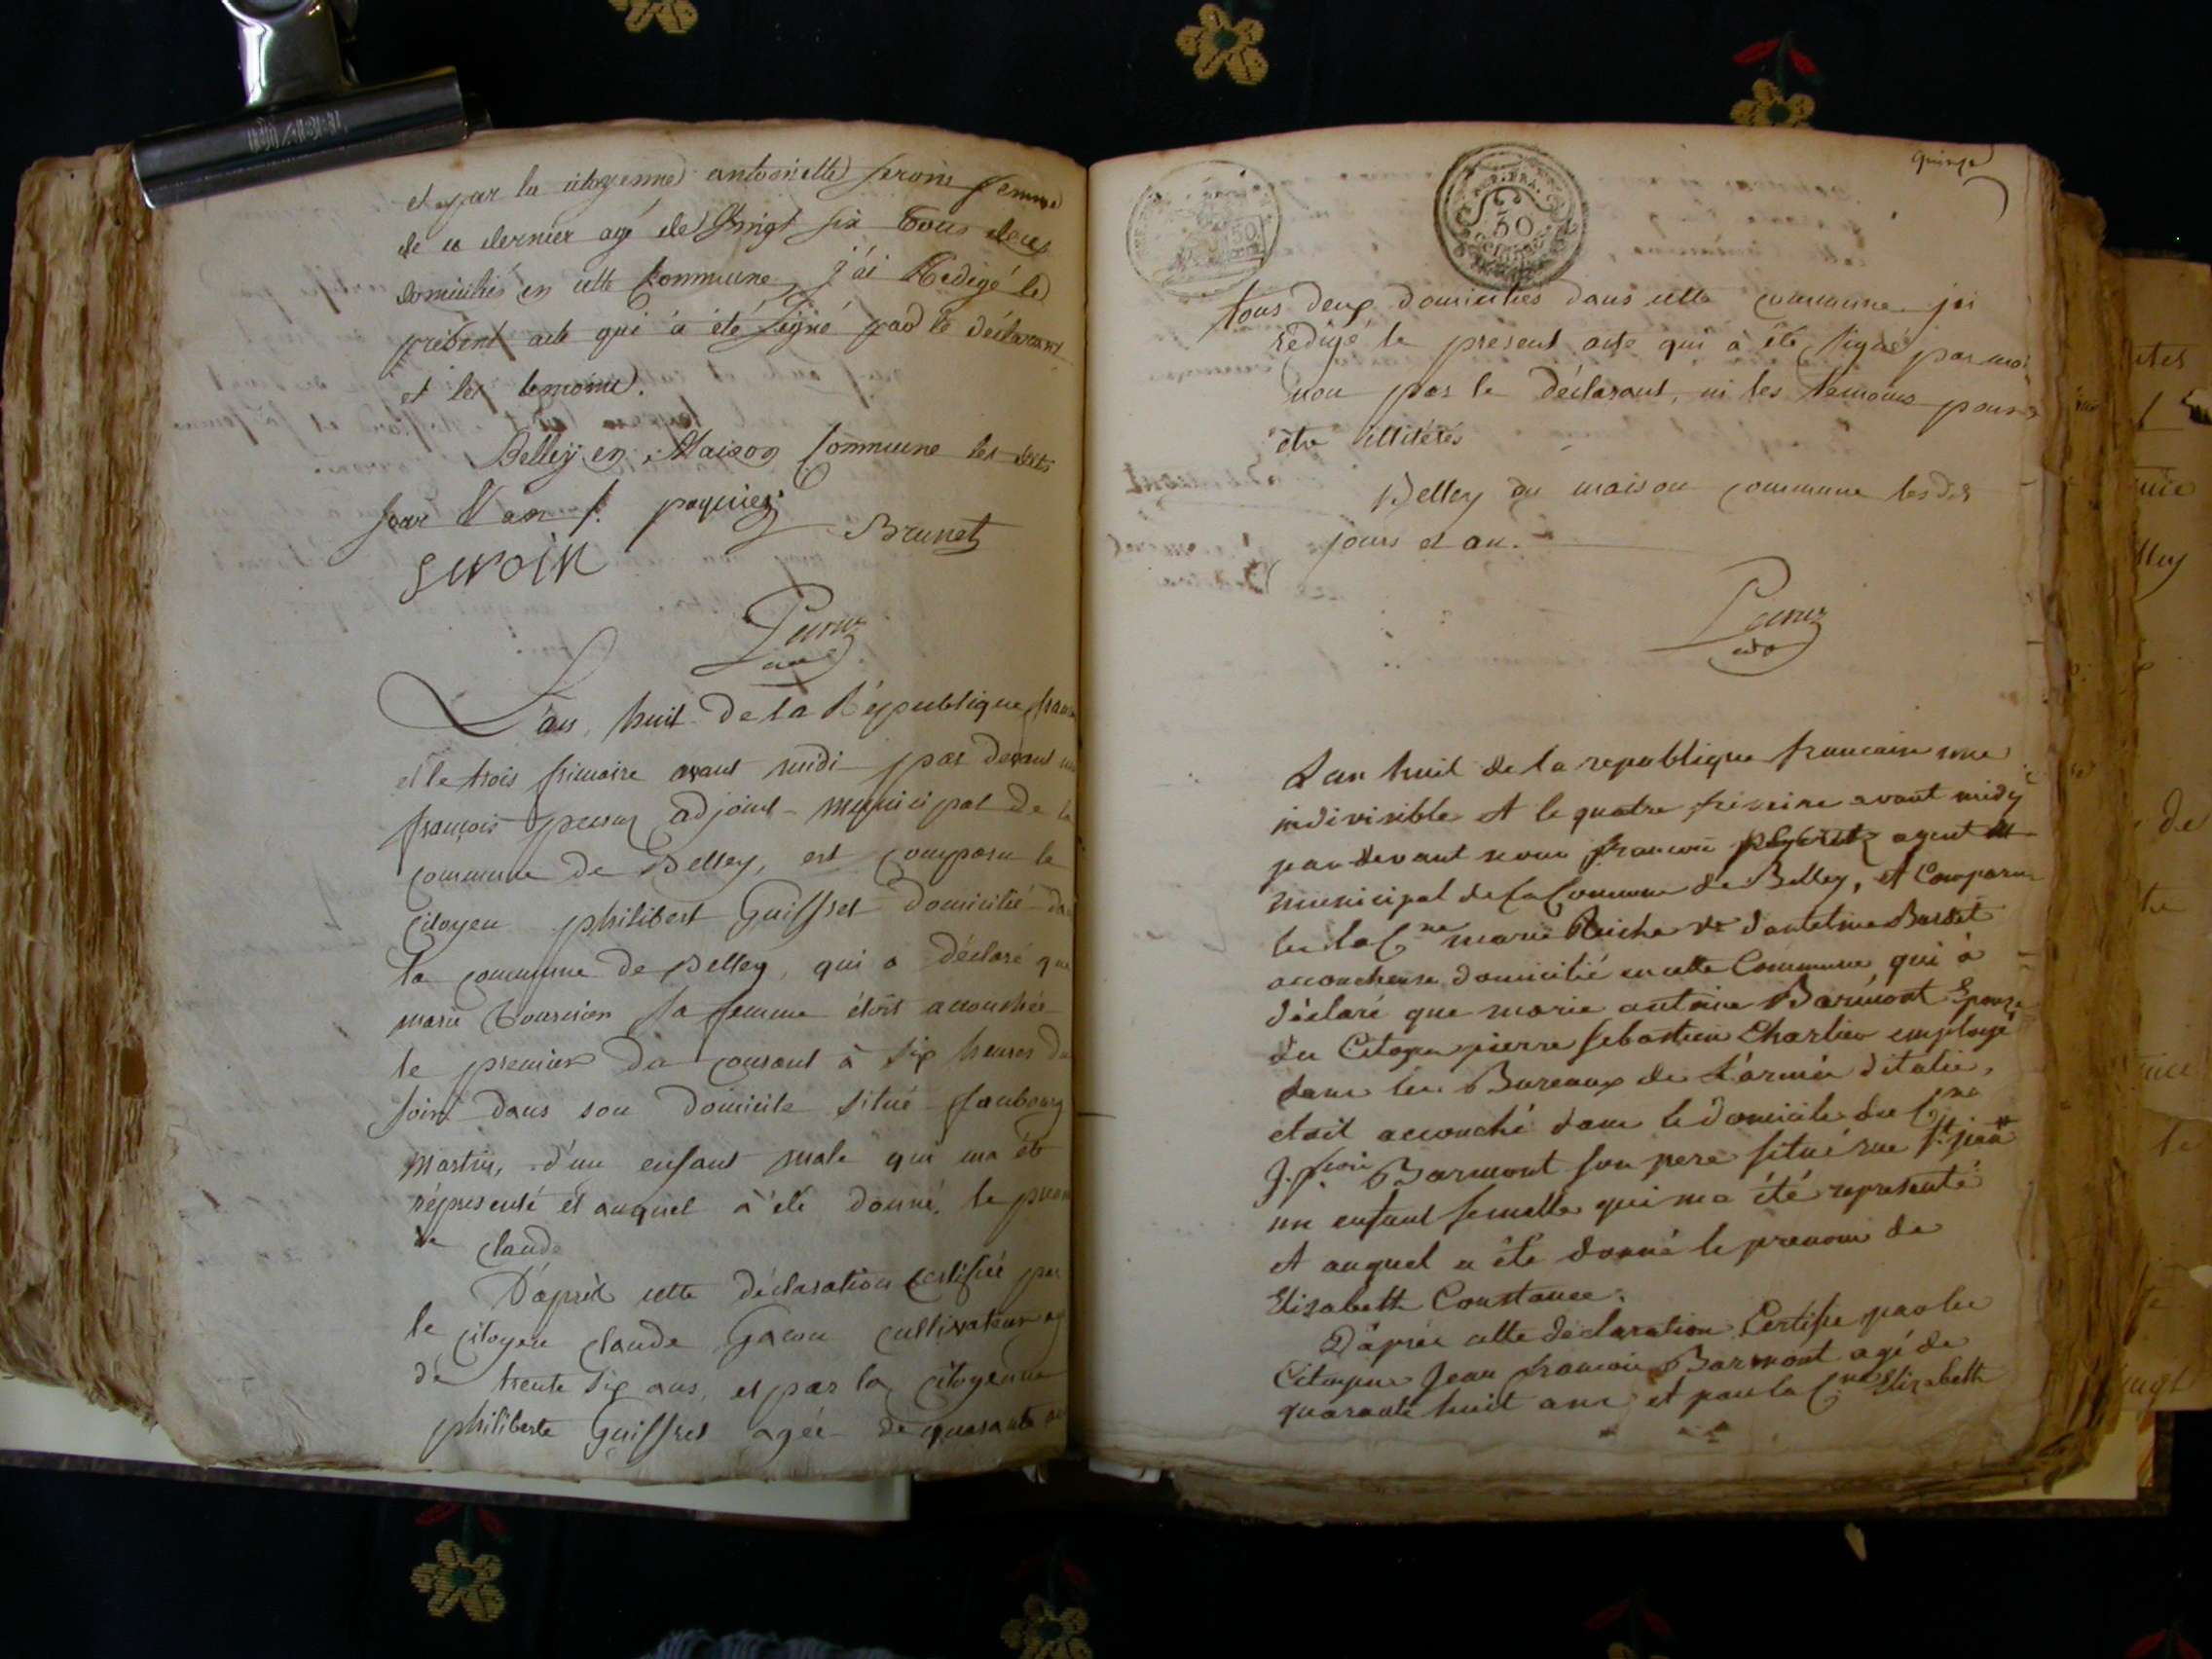 et par la citoyenne antoinette seroin femme
de ce dernier agé de vingt six tous deux
domiciliés en cette Commune, j'ai Redigé le
présent acte qui à été Signé par le déclarant
et les temoins.
Belley en Maison Commune les dits
Jour & an /. paquier
Brunet
Seroin
L'an, huit de la République
et le trois frimaire avant midi par devant
françois adjoint municipal de la
commune de Belley, est comparu le
Citoyen philibert Guiffret domicilié
la commune de Belley, qui a déclaré que
marie sa femme étoit accouchée
le premier du courant à six heures du
soir dans son domicile situé faubourg
martin, d'un enfant male qui ma été
réprésenté et auquel à été donné, le
de Claude
D'aprèt cette déclaration certifiée par
le citoyen Claude Gacon cultivateur
de trente six ans, et par la citoyenne
philiberte Guiffret agée de quarante
quinze
REP. FRA.
50
50
tous deux domiciliés dans cette commune jai
rédigé le present acte qui à été signé par moi
non par le déclarant, ni les temoins pour
être illitérés
Belley en maison commune les dits
jours et an.
L'an huit de la republique francaise une
indivisible et le quatre frimaire avant midy
par devant nous francois agent
municipal de la Commune de Belley, et Comparu
la C.ne marie d'antelme
accoucheuse domicilié en cette Commune, qui à
déclaré que marie antoine Barmont Epouse
du Citoyen pierre sebastien Charlier employé
dans les Bureaux de l'armée d'italie,
etoit accouché dans le domicile du C.en
J. f.cois Barmont son pere situé rue St. jean
un enfant femelle qui ma été representé
et auquel a été donné le prenom de
Elisabeth Constance.
D'aprés cette déclaration Certifié par le
Citoyen Jean francois Barmont agé de
quarante huit ans et par la C.ne Elizabeth